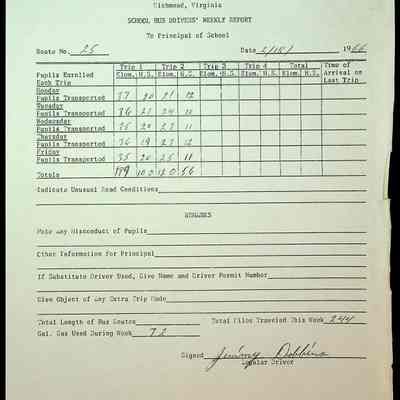 Richmond, Virginia
SCHOOL BUS DRIVERS' WEEKLY REPORT
To Principal of School
Route No. 25 Date 1966
Trip 1 Trip 2 Trip 3 Trip 4 Total Time of
Pupils Enrolled Elem. H.S. Elem. H.S. Elem. H.S. Elem. H.S. Elem. H.S. Arrival on
Each Trip Last Trip
Monday
Pupils Transported 37 20 21 12
Tuesday
Pupils Transported 36 21 24 11
Wednesday
Pupils Transported 35 20 23 11
Thursday
Pupils Transported 36 19 27 12
Friday
Pupils Transported 35 20 25 11
Totals 179 100 120 56
Indicate Unusual Road Conditions
REMARKS
Note Any Misconduct of Pupils
Other Information for Principal
If Substitute Driver Used, Give Name and Driver Permit Number
Give Object of Any Extra Trip Made
Total Length of Bus Routes Total Miles Traveled This Week 244
Gal. Gas Used During Week 72
Signed Jimmy Dobbins
Regular Driver